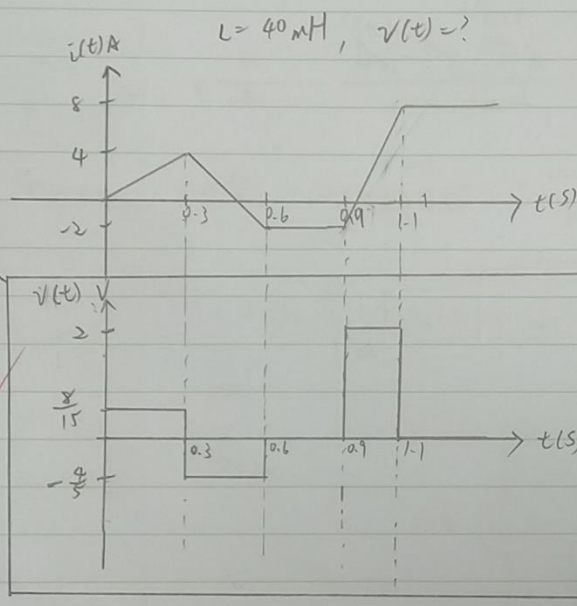 L = 40 mH, v(t) = ?
i(t) A
8
4
-2
0.3
0.6
0.9
1.1
t(s)
v(t) V
2
8/15
-4/5
0.3
0.6
0.9
1.1
t(s)